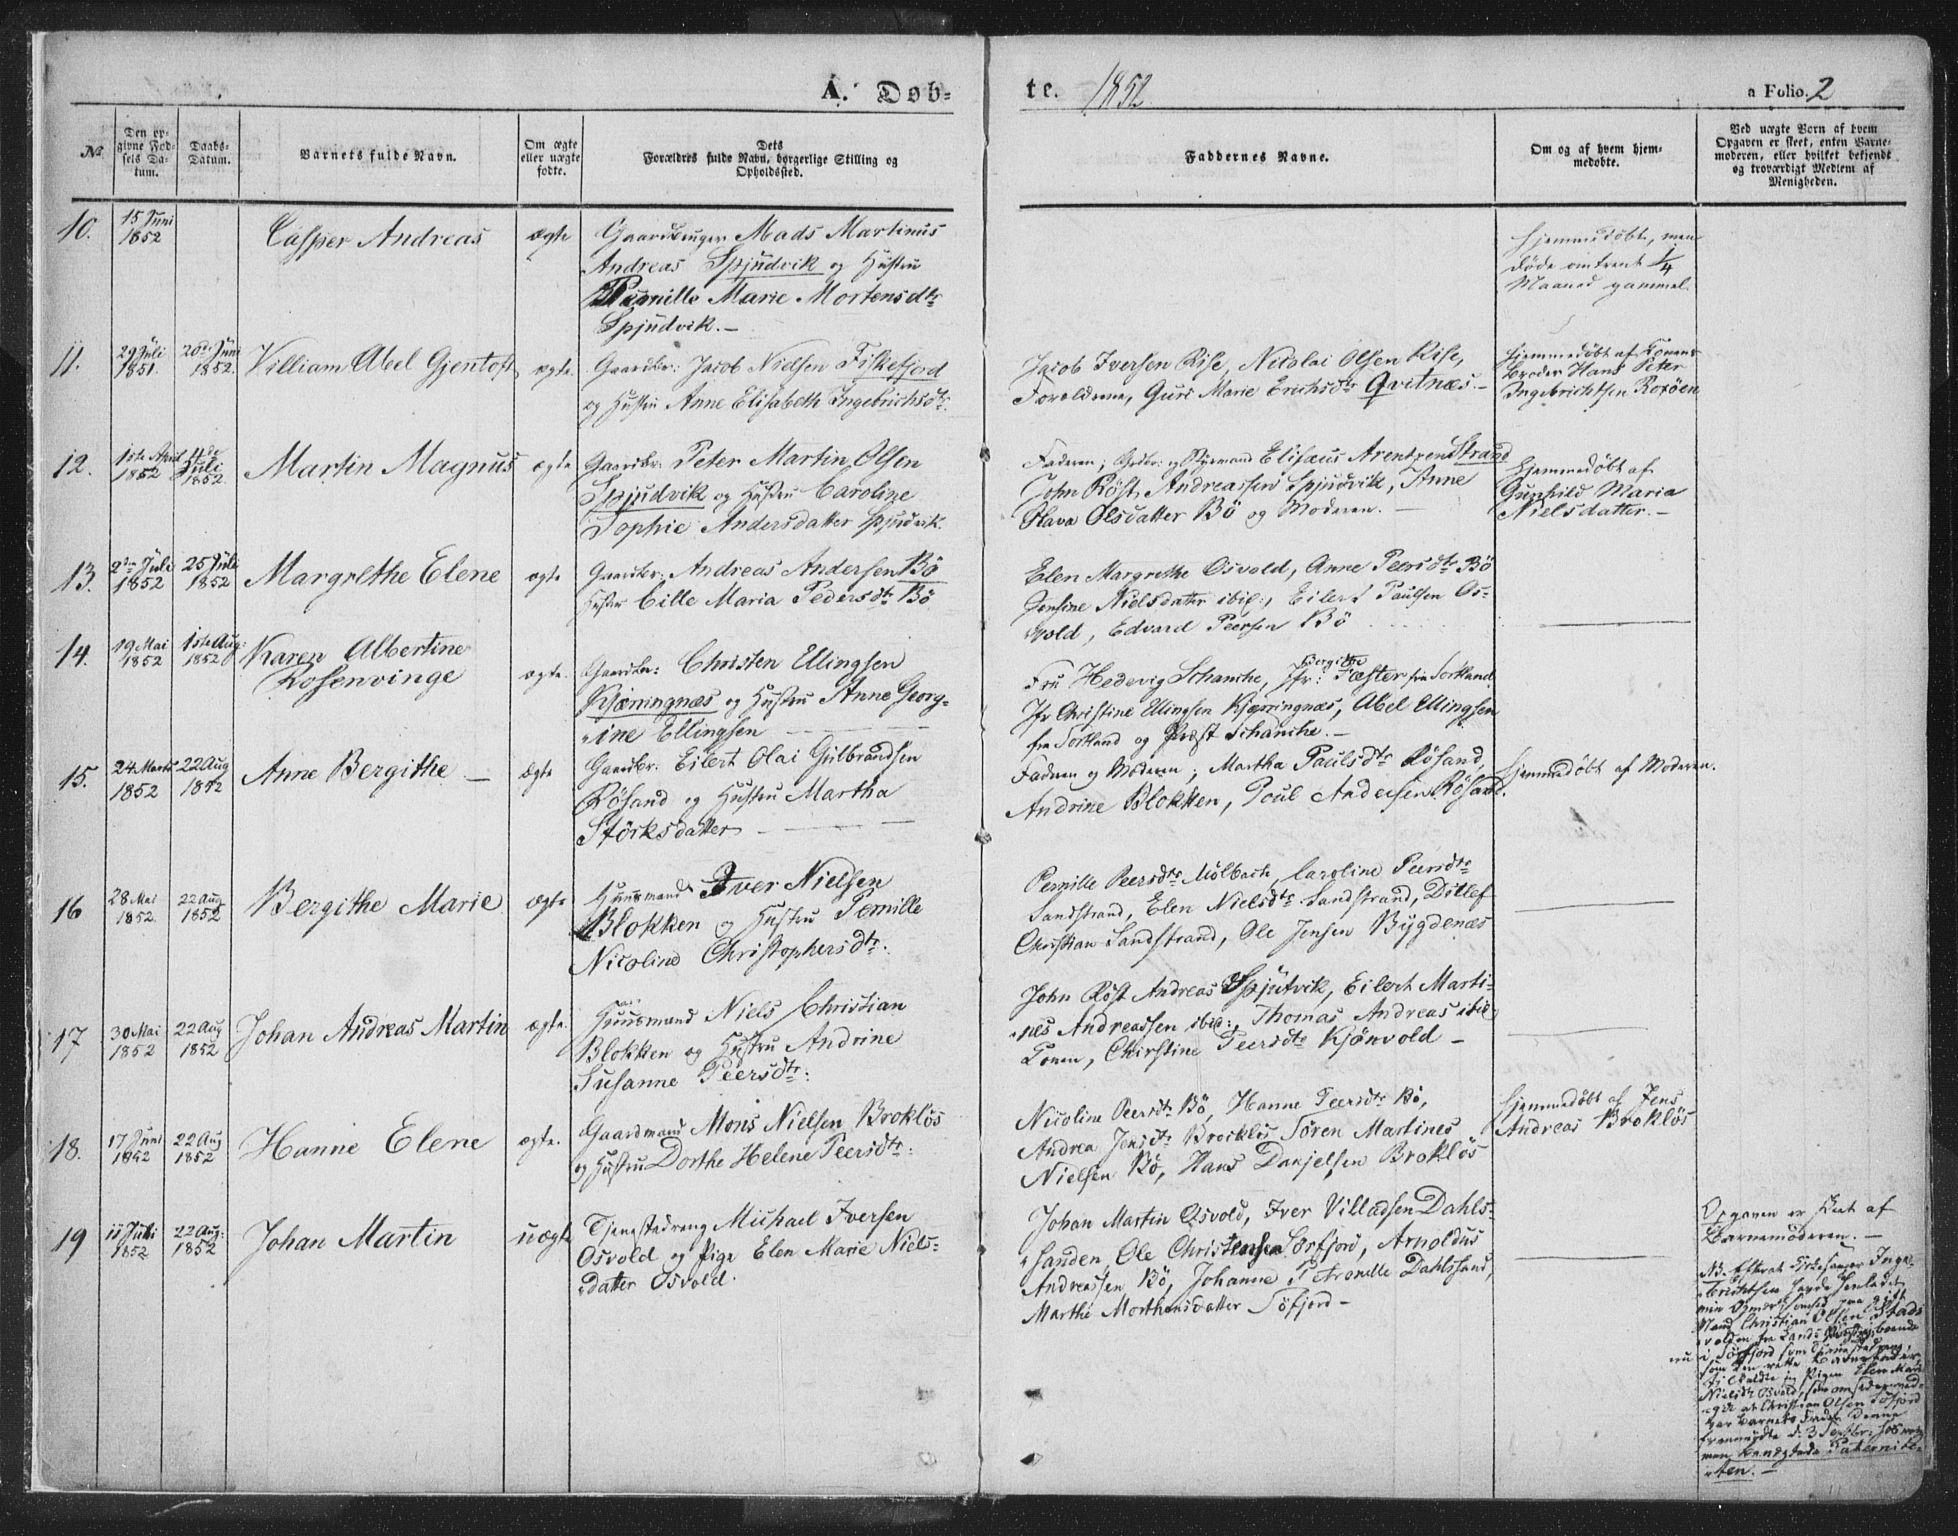 A. Døb-
te. 1852
a Folio. 2
No
Den op-
givne Fød-
sels Da-
tum.
Daabs-
Datum.
Barnets fulde Navn.
Om ægte
eller uægte
fødte.
Dets
Forældres fulde Navn, borgerlige Stilling og
Opholdssted.
Faddernes Navne.
Om og af hvem hjem-
medøbte.
Ved uægte Børn af hvem
Opgaven er skeet, enten Barne-
moderen, eller hvilket bekjendt
og troværdigt Medlem af
Menigheden.
10.
15 Juni
1852
Casper Andreas
ægte
Gaardbruger Mads Martinus
Andreas Spjudvik og Hustru
Pernille Marie Mortensdtr
Spjudvik.-
Hjemmedøbt, men
døde omtrent 1/4
Maaned gammel.
11.
29 Juli
1851.
20de Juni
1852.
Villiam Abel Gjentoft
ægte.
Gaardbr: Jacob Nielsen Fiskefjord
og Hustru Anne Elisabeth Ingebrichsdtr.
Jacob Iversen Rise, Nicolai Olsen Rise,
Forældrene, Guri Marie Erichsdtr Qvitnæs.-
Hjemmedøbt af Konens
Broder Hans Peter
Ingebrichtsen Roxøen
12.
1ste April
1852
4de
Juli
1852.
Martin Magnus
ægte
Gaardbr: Peter Martin Olsen
Spjudvik og Hustru Caroline
Sophie Andersdatter Spjudvik.
Faderen, Grdbr: og Styrmand Elisæus Arentzen Strand
John Röst Andreassen Spjudvik, Anne
Olava Olsdatter Bö og Moderen. -
Hjemmedøbt af
Gunhild Maria
Nielsdatter.-
13.
2den Juli
1852
25 Juli
1852
Margrethe Elene
ægte
Gaardbr: Andreas Andersen Bö
Hustru Cille Maria Pedersdtr Bö
Elen Margrethe Osvold, Anne Peersdtr Bö
Jensine Nielsdatter ibid:, Eilert Paulsen Os-
vold, Edvard Peersen Bö
14.
19 Mai
1852
1ste Aug:
1852
Karen Albertine
Rosenvinge
ægte.
Gaardbr: Christen Ellingsen
Kjørringnæs og Hustru Anne Georg-
ine Ellingsen
Fru Hedevig Schanche, Jfr: Bergithe Fæster fra Sortland
Jfr Christine Ellingsen Kjørringnæs, Abel Ellingsen
fra Sortland og Præst Schanche.-
15.
24 Marts
1852
22 Aug
1852
Anne Bergithe -
ægte
Gaardbr. Eilert Olai Gulbrandsen
Rösand og Hustru Martha
Störksdatter
Faderen og Moderen, Martha Paulsdtr Rösand,
Andrine Blokken, Poul Andersen Rösand.
Hjemmedøbt af Moderen.
16
28 Mai
1852.
22 Aug
1852
Bergithe Marie
ægte
Huusmand Iver Nielsen
Blokken og Hustru Pernille
Nicoline Christophersdtr:
Pernille Peersdtr Mölbach, Caroline Peersdtr
Sandstrand, Elen Nielsdtr Sandstrand, Ditlef
Christian Sandstrand, Ole Jensen Bygdenæs
17
30 Mai
1852
22 Aug
1852
Johan Andreas Martin
ægte
Huusmand Niels Christian
Blokken og Hustru Andrine
Susanne Peersdtr:
John Röst Andreas Spjutvik, Eilert Marti-
nes Andreassen ibid:, Thomas Andreas ibid
Konen, Christine Peersdtr Kjönvold -
18.
17 Juni
1852
22 Aug
1852
Hanne Elene
ægte.
Gaardmand Mons Nielsen Broklös
og Hustru Dorthe Helene Peersdtr:
Nicoline Peersdtr Bö, Hanne Peersdtr Bö,
Andrea Jensdtr Brocklös Sören Martines
Nielsen Bö, Hans Danjelsen Broklös
Hjemmedøbt af Jens
Andreas Broklös
19
11 Juli
1852
22 Aug:
1852
Johan Martin
uægte
Tjenestedreng Michael Iversen
Osvold og Pige Elen Marie Niels-
datter Osvold.
Johan Martin Osvold, Iver Villadsen Dahls-
sanden, Ole Christensen Sörfjord, Arnoldus
Andreassen Bö, Johanne Petronelle Dahlssand,
Marthe Morthensdatter Söfjord-
Opgaven er skeet af
Barnemoderen.-
NB. Efterat Kirkesanger Inge-
brichtsen havde henledet
min Opmærksomhed paa gift
Mand Christian Olsen Stads-
volden fra Lands Præstegj: boende
nu i Sörfjord som Tjenestedreng,
som den rette Barnefader
tilkaldte jeg Pigen Elen Marie
Nielsdtr Osvold, som omsider vedgik
at Christian Olsen Söfjord
var Barnets Fader. Denne
fremmødte d: 3 Septbr: hos mig
men benægtede Paternite-
ten.-